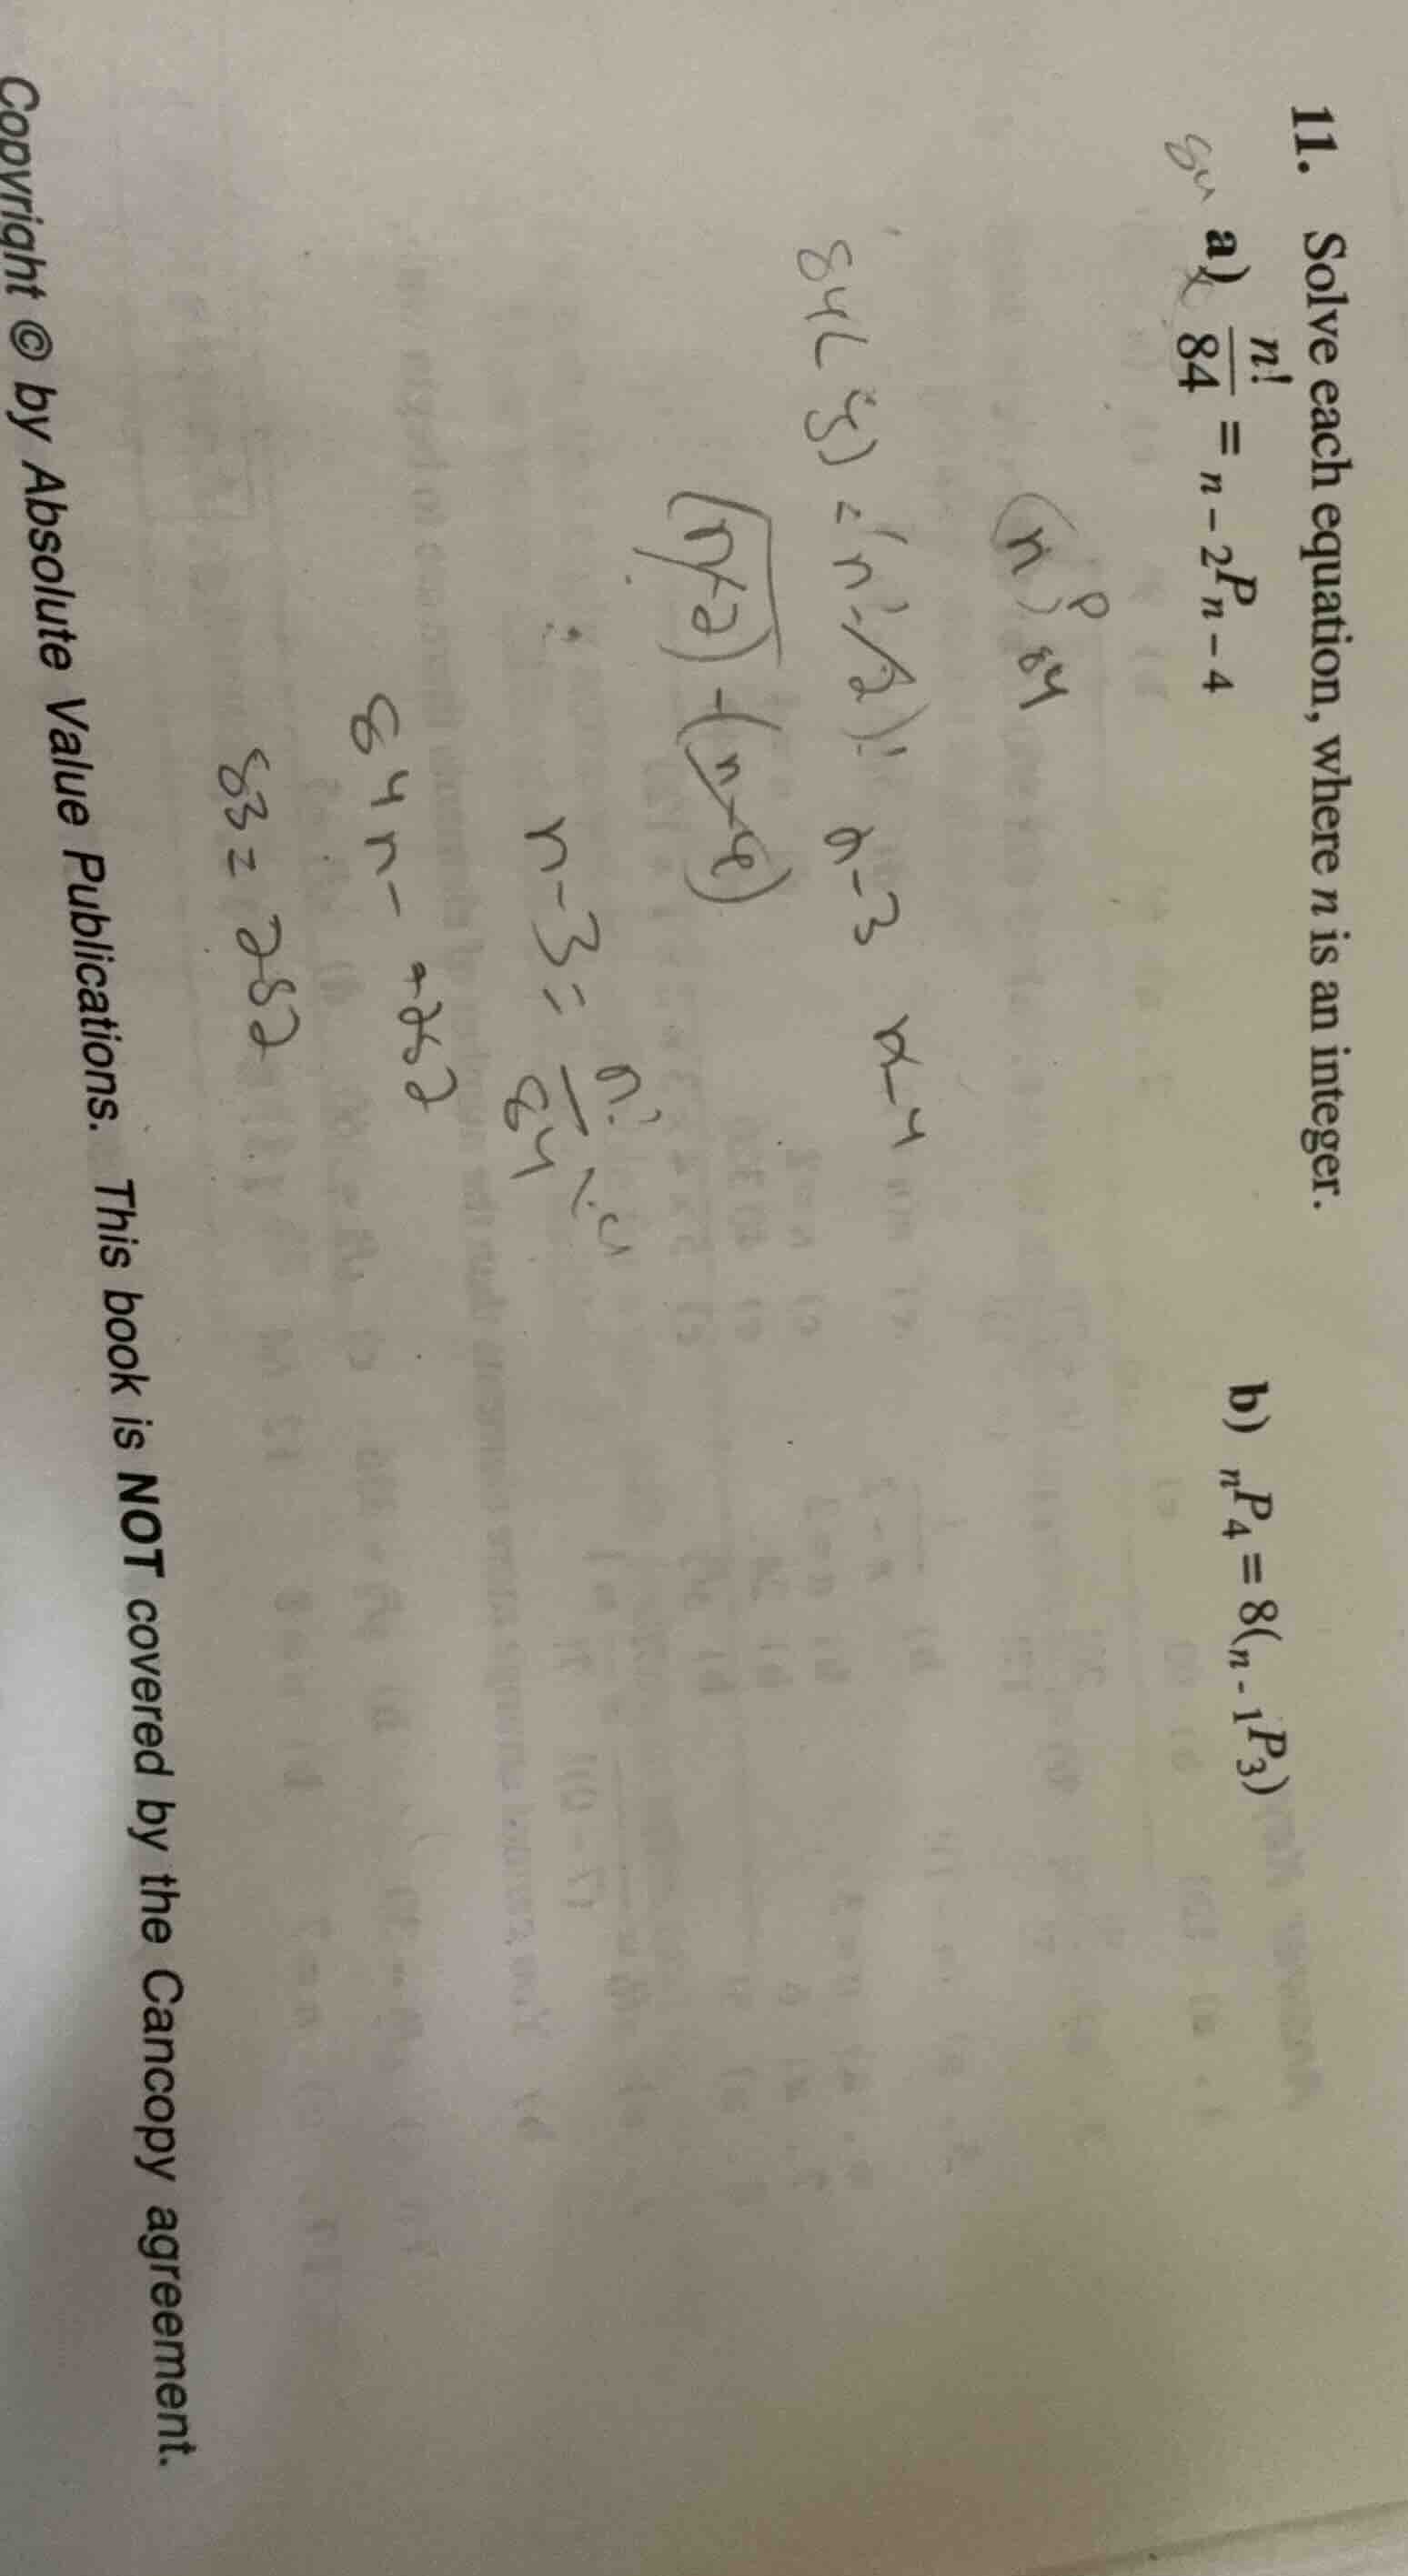 11. Solve each equation, where n is an integer.
a) n!/84 = n − 2Pn − 4 b) nP4 = 8(n - 1P3)
84
(n) P 84
84( ) = (n - 2)! n-3 n-4
(n-2) - (n-4)
n-3 = n!/84
84n- 252
83 = 252
Copyright © by Absolute Value Publications. This book is NOT covered by the Cancopy agreement.